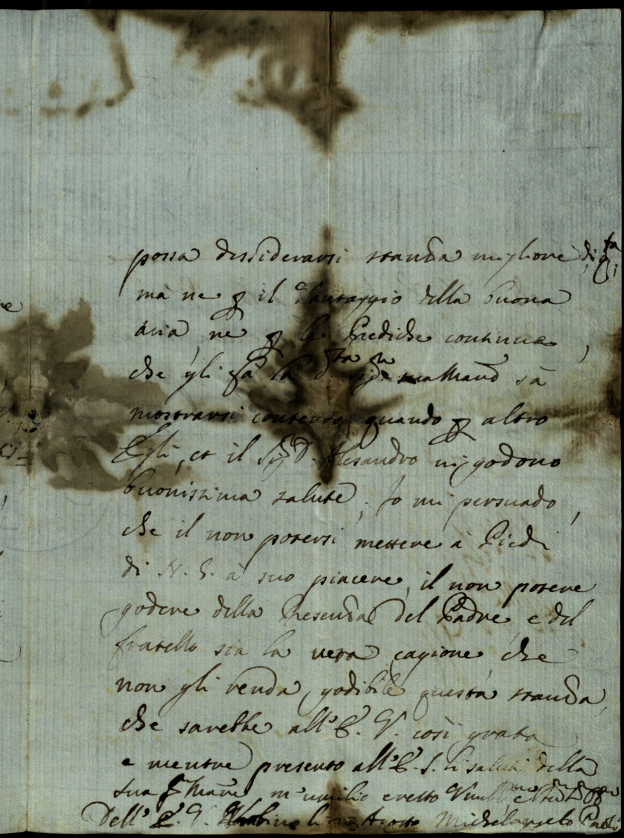 possa dessiderarsi stanza migliore di
ma ne il Vantaggio della buona
aria ne le Prediche continue,
che gli
mostrarsi contenta quando altro
Egli, et il Sig. D. Alesandro vi godono
buonissima salute, Io mi persuado,
che il non potersi mettere a Piedi
di N. S. a suo piacere, il non potere
godere della Presenza del Padre e del
fratello sia la vera cagione che
non gli renda godibile questa stanza,
che sarebbe all'E. V. così grata
e mentre presento all'E. S. li saluti della
sua m'umilio e resto
Dell' E. V. Agosto Michelangelo